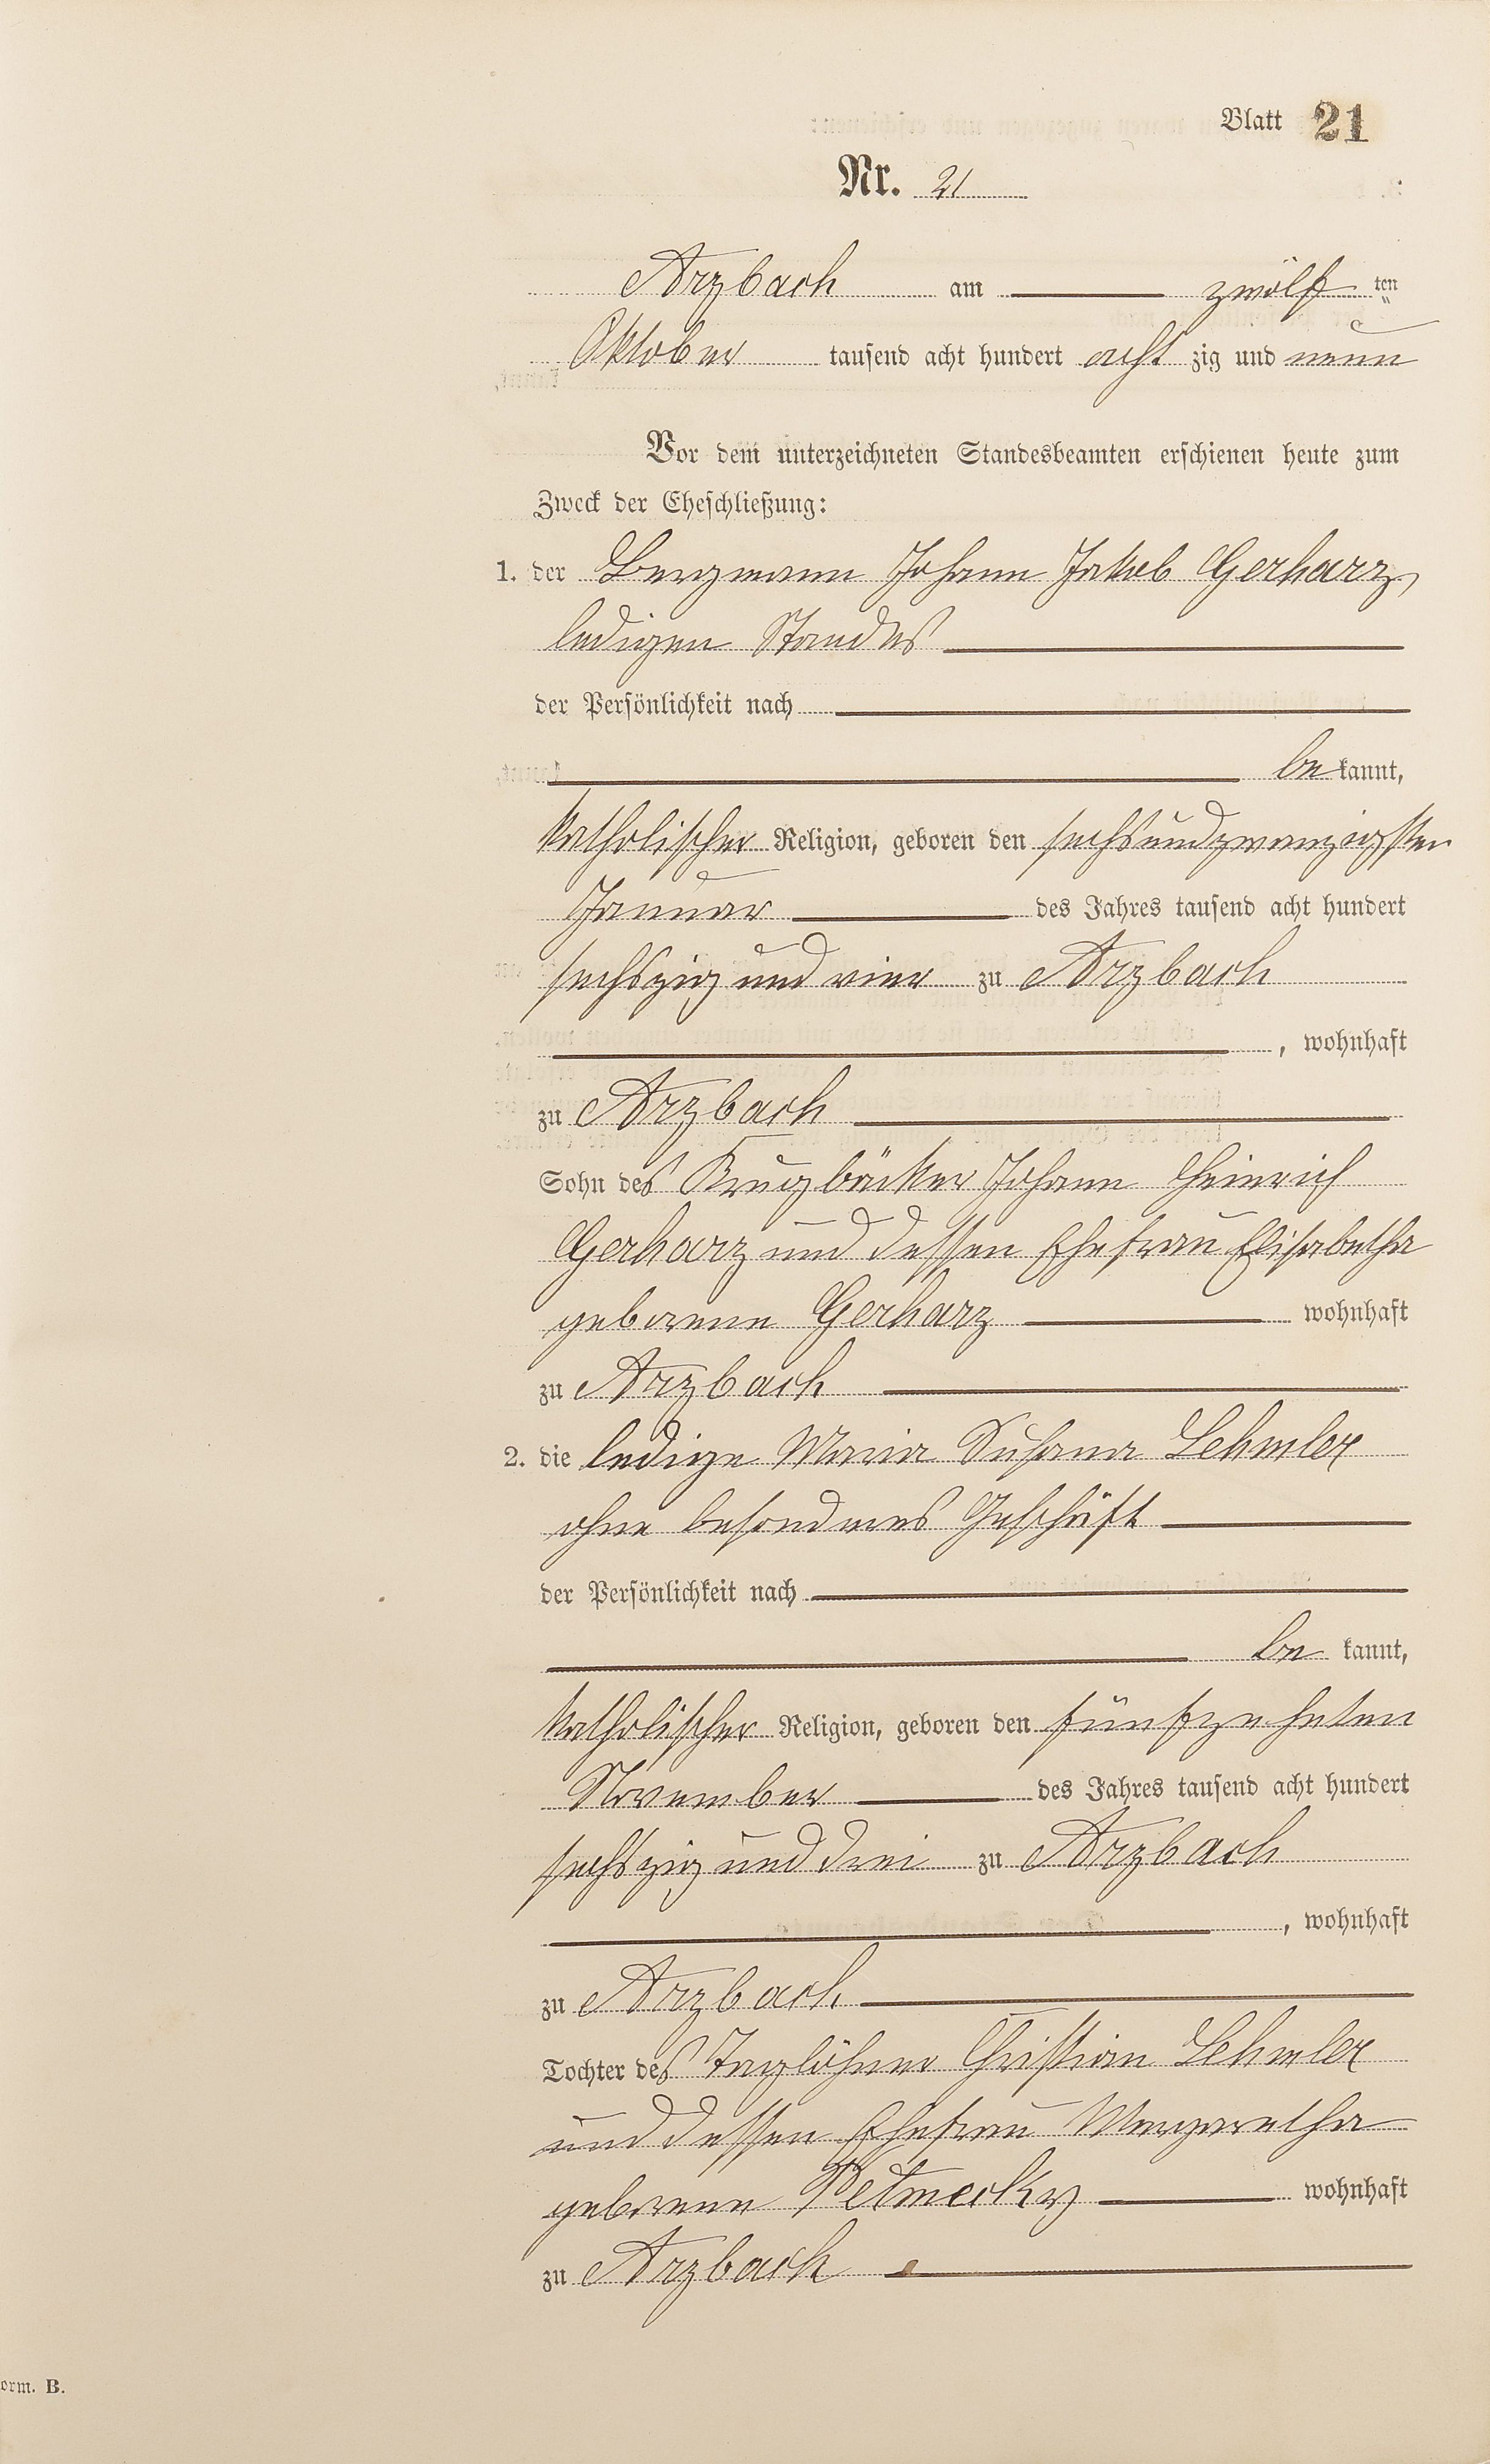 Blatt 21
Nr. 21
Arzbach am zwölf ten
Oktober tausend acht hundert acht zig und neun
Vor dem unterzeichneten Standesbeamten erschienen heute zum
Zweck der Eheschließung:
1. der Bergmann Johann Jakob Gerharz,
ledigen Standes
der Persönlichkeit nach
be kannt,
katholischer Religion, geboren den sechsundzwanzigsten
Januar des Jahres tausend acht hundert
sechszig und vier zu Arzbach
, wohnhaft
zu Arzbach
Sohn des Krugbäcker Johann Heinrich
Gerharz und dessen Ehefrau Elisabetha
geborene Gerharz wohnhaft
zu Arzbach
2. die ledige Maria Susana Lehmler
ohne besonderes Geschäft
der Persönlichkeit nach
be kannt,
katholischer Religion, geboren den fünfzehnten
November des Jahres tausend acht hundert
sechszig und drei zu Arzbach
, wohnhaft
zu Arzbach
Tochter des Taglöhner Christian Lehmler
und dessen Ehefrau Margaretha
geborene Petmecky wohnhaft
zu Arzbach
orm. B.